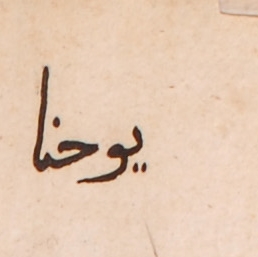 يوحنا